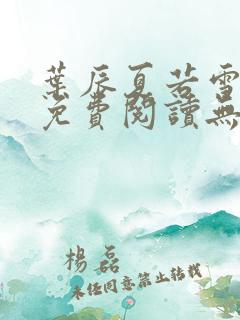 葉辰夏若雪
免費閱讀無
楊磊
未經同意禁止轉載